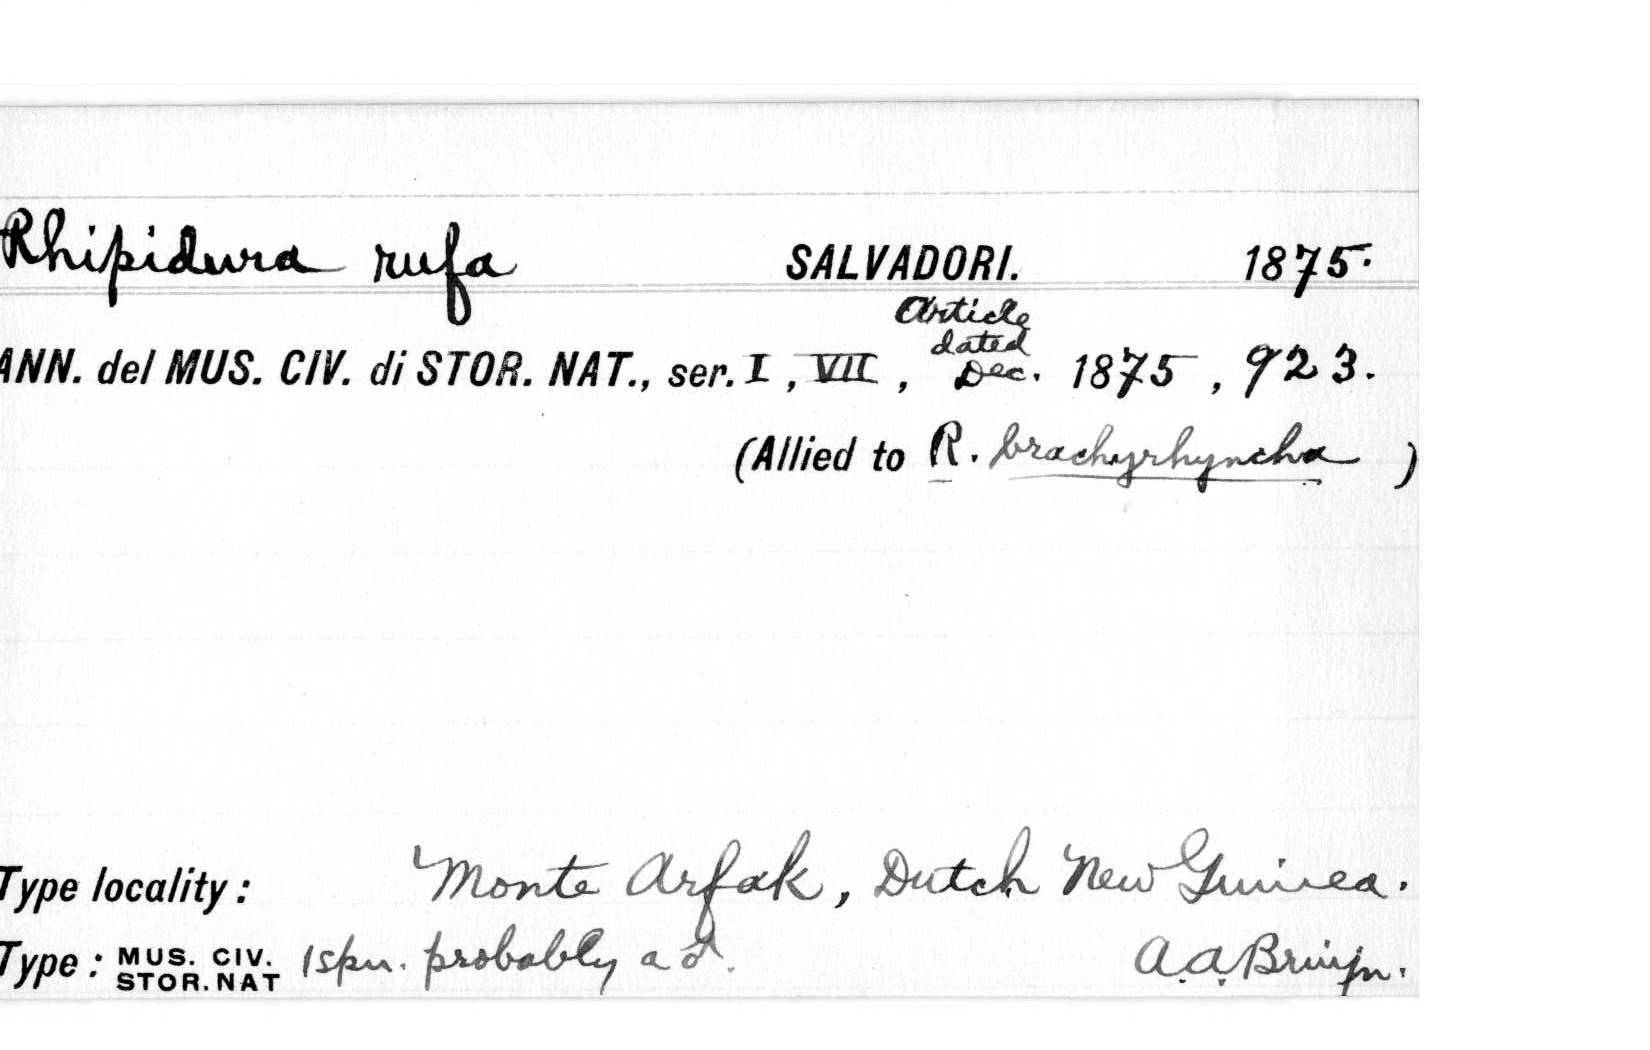 Rhipidura rufa SALVADORI. 1875.
ANN. del MUS. CIV. di STOR. NAT., ser. I, VII, Article dated Dec. 1875, 923.
(Allied to R. brachyrhyncha)
Type locality: Monte Arfak, Dutch New Guinea.
Type: MUS. CIV. STOR. NAT 1 spn. probably a ♂. A.A. Bruijn.